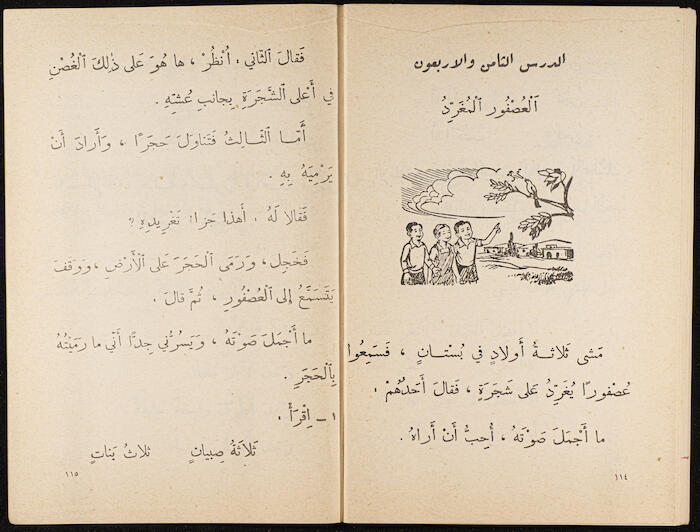 الدرس الثامن والاربعون
اَلْعُصْفُور اَلْمُغَرِّدُ
مَشى ثَلاثَةُ أَولادٍ في بُسْتانٍ ، فَسَمِعُوا
عُصْفورًا يُغَرِّدُ عَلى شَجَرَةٍ ، فَقالَ أَحَدُهُمْ :
ما أَجْمَلَ صَوْتَهُ ، أُحِبُّ أَنْ أَراهُ .
١١٤
فَقالَ الثّاني : اُنْظُرْ ، ها هُوَ عَلى ذٰلِكَ الْغُصْنِ
في أَعْلى الشَّجَرَةِ بِجانِبِ عُشِّهِ .
أَمّا الثّالِثُ فَتَناوَلَ حَجَرًا ، وَأَرادَ أَنْ
يَرْمِيَهُ بِهِ .
فَقالا لَهُ : أَهٰذا جَزاءُ تَغْريدِهِ ؟
فَخَجِلَ ، وَرَمَى الْحَجَرَ عَلى الْأَرْضِ ، وَوَقَفَ
يَتَسَمَّعُ إلى الْعُصْفُورِ ، ثُمَّ قالَ .
ما أَجْمَلَ صَوْتَهُ ، وَيَسُرُّني جِدًّا أَنّي ما رَمَيْتُهُ
بِالْحَجَرِ .
١ – اِقْرَأْ :
ثَلاثَةُ صِبيانٍ ثلاثُ بَناتٍ
١١٥